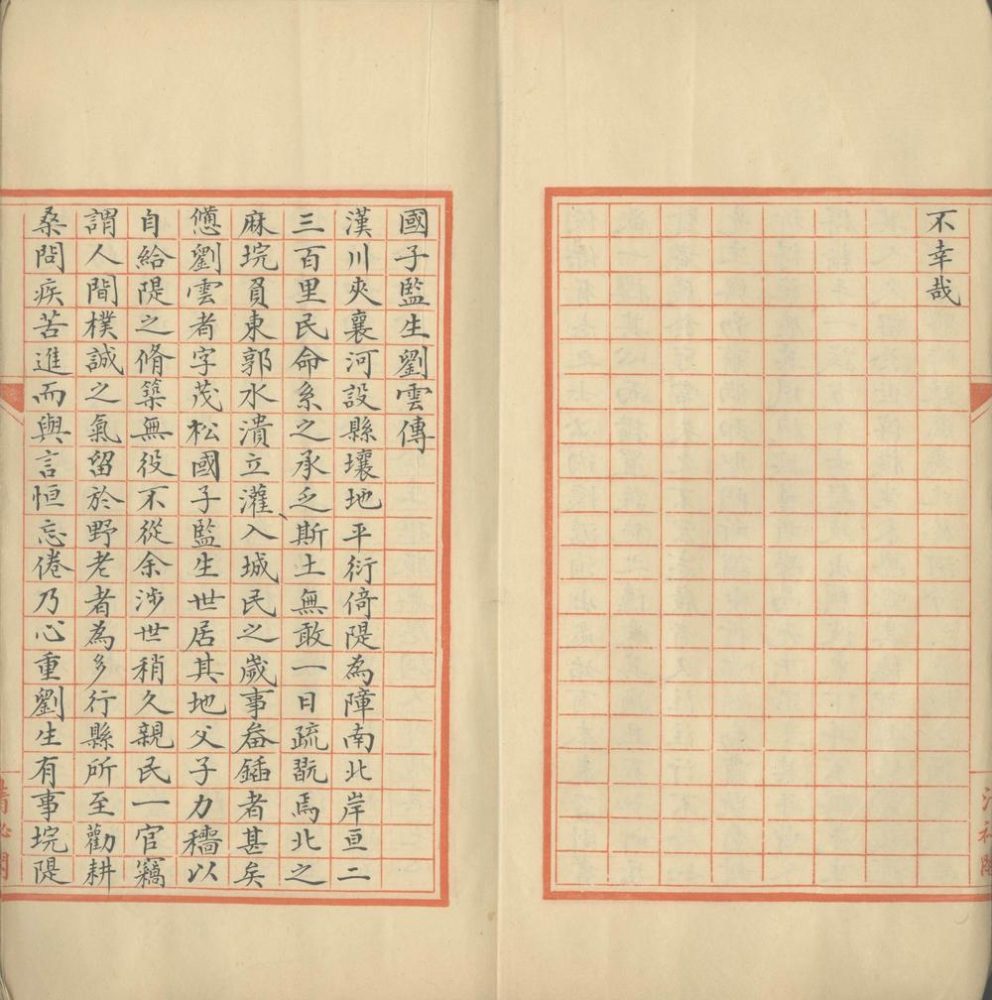 不幸哉
國子監生劉雲傳
漢川夾襄河設縣壤地平衍倚隄為障南北岸亘二
三百里民命系之承乏斯土無敢一日疏翫焉北之
麻垸負東郭水潰立灌入城民之歲事畚鍤者甚矣
憊劉雲者字茂松國子監生世居其地父子力穡以
自給隄之脩築無役不從余涉世稍久親民一官竊
謂人間樸誠之氣留於野老者為多行縣所至勸耕
桑問疾苦進而與言恒忘倦乃心重劉生有事垸隄
清祕閣